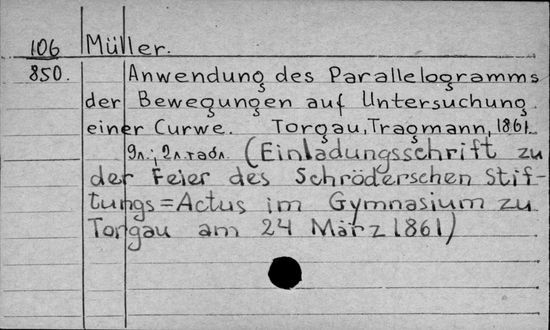 106 Müller.
850. Anwendung des Parallelogramms
der Bewegungen auf Untersuchung
einer Curwe. Torgau, Tragmann, 1861.
9л.; 2л. табл. (Einladungsschrift zu
der Feier des Schröderschen Stif-
tungs=Actus im Gymnasium zu
Torgau am 24 März 1861)